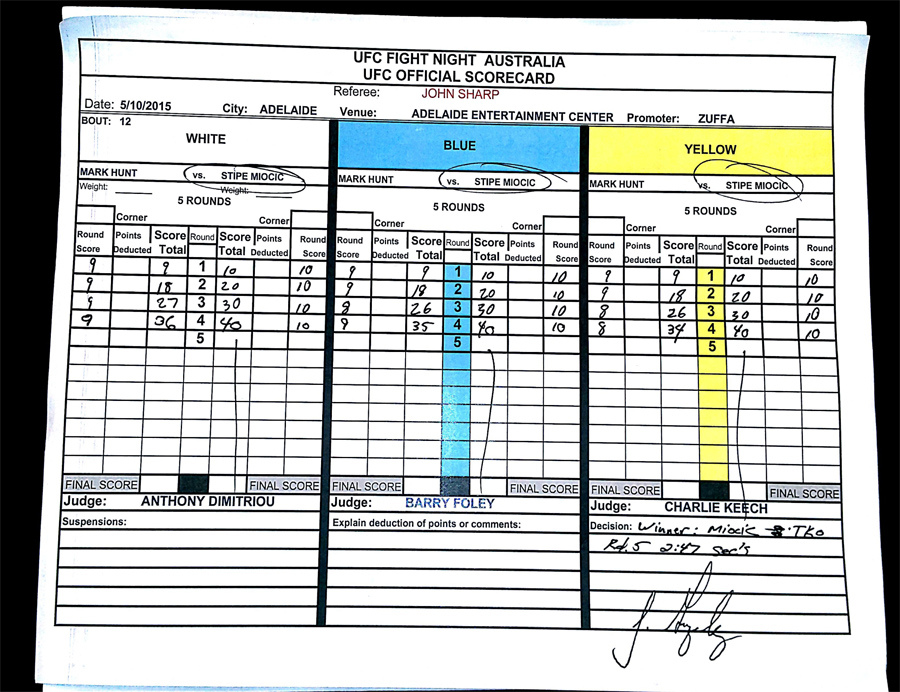 UFC FIGHT NIGHT AUSTRALIA
UFC OFFICIAL SCORECARD
Referee: JOHN SHARP
Date: 5/10/2015 City: ADELAIDE Venue: ADELAIDE ENTERTAINMENT CENTER Promoter: ZUFFA
BOUT: 12
WHITE BLUE YELLOW
MARK HUNT vs. STIPE MIOCIC MARK HUNT vs. STIPE MIOCIC MARK HUNT vs. STIPE MIOCIC
Weight: Weight:
5 ROUNDS 5 ROUNDS 5 ROUNDS
Corner Corner Corner Corner Corner Corner
Round Score Points Deducted Score Total Round Score Total Points Deducted Round Score Round Score Points Deducted Score Total Round Score Total Points Deducted Round Score Round Score Points Deducted Score Total Round Score Total Points Deducted Round Score
9 9 1 10 10 9 9 1 10 10 9 9 1 10 10
9 18 2 20 10 9 18 2 20 10 9 18 2 20 10
9 27 3 30 10 8 26 3 30 10 8 26 3 30 10
9 36 4 40 10 9 35 4 40 10 8 34 4 40 10
5 5 5
FINAL SCORE FINAL SCORE FINAL SCORE FINAL SCORE FINAL SCORE FINAL SCORE
Judge: ANTHONY DIMITRIOU Judge: BARRY FOLEY Judge: CHARLIE KEECH
Suspensions: Explain deduction of points or comments: Decision: Winner: Miocic TKO
Rd. 5 2:47 sec's